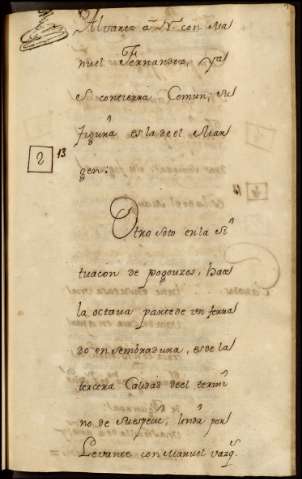 Alvarez â Nᵗᵉ con Ma
nuel Fernandez, Ya
s, con tierra Comun, su
figura es la de el Mar
gen.
2 13
Otro soto en la Si
tuacion de pogouzos, haze
la octava parte de un ferra
do en sembradura, es de la
tercera Calidad de el termi
no de su especie, linda por
Levante con Manuel Vazqᶻ